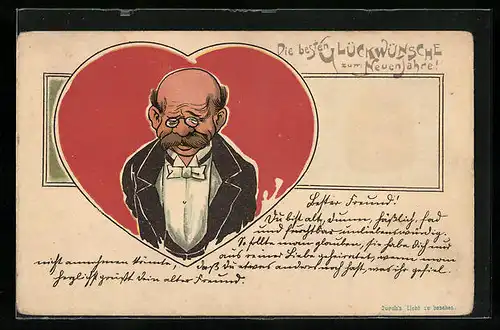 Die besten GLÜCKWÜNSCHE
zum Neuen Jahre!
Bester Freund!
Du bist alt, dumm, häßlich, fad
und furchtbar unliebenswürdig.
So sollte man glauben, sie habe Dich nur
aus reiner Liebe geheiratet, wenn man
nicht annehmen könnte, daß Du etwas anderes noch hast, was ihr gefiel.
Herzlichst grüßt Dein alter Freund.
Durch's Licht zu besehen.